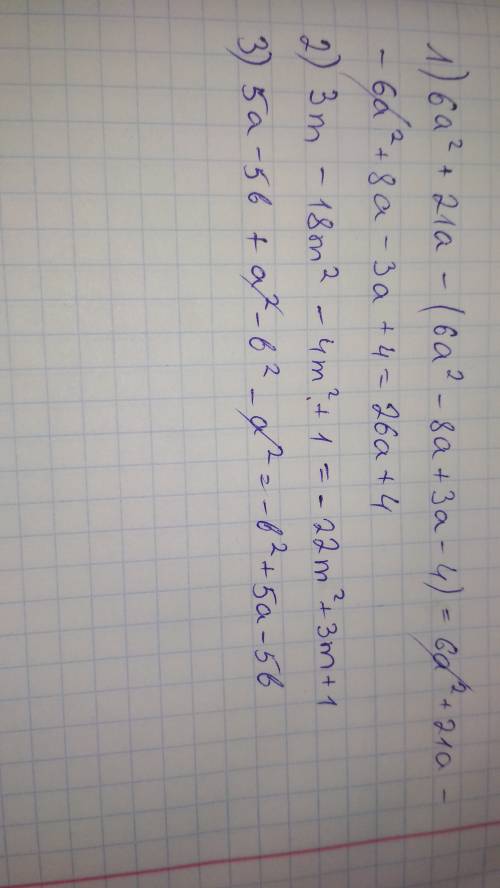 1) 6a² + 21a - (6a² - 8a + 3a - 4) = 6a² + 21a -
- 6a² + 8a - 3a + 4 = 26a + 4
2) 3m - 18m² - 4m² + 1 = - 22m² + 3m + 1
3) 5a - 5в + a² - в² - a² = - в² + 5a - 5в